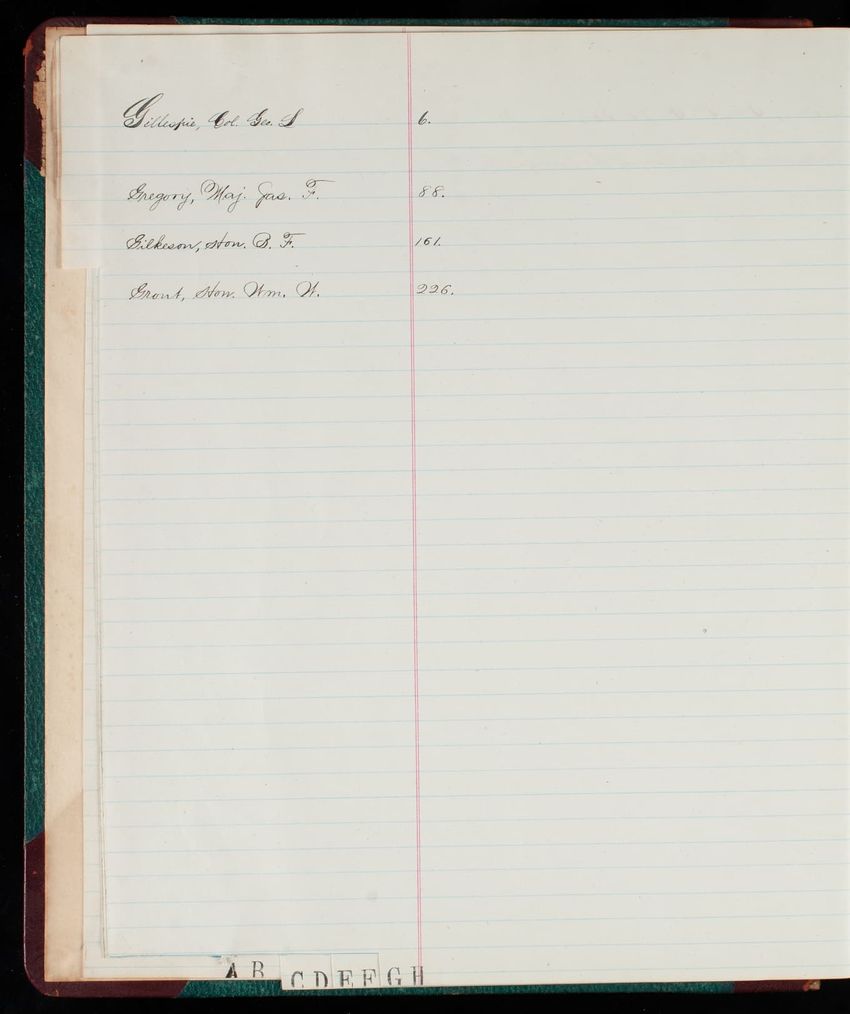 Gillespie, Col. Geo. L 6.
Gregory, Maj. Jas. F. 88.
Gilkeson, Hon. B. F. 161.
Grout, Hon. Wm. W. 226.
A B C D E F G H